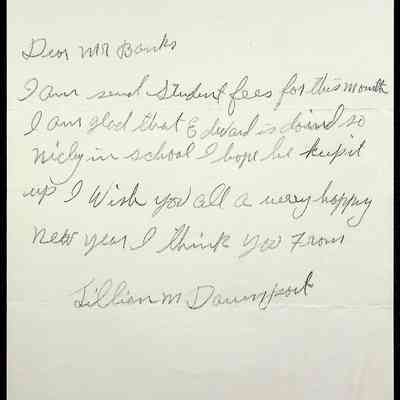 Dear Mr Banks
I am send Student fees for this Month
I am glad that Edward is doind so
nicly in school I hope he keep it
up I Wish you all a very happy
new year I think you From
Lillian M Davenport